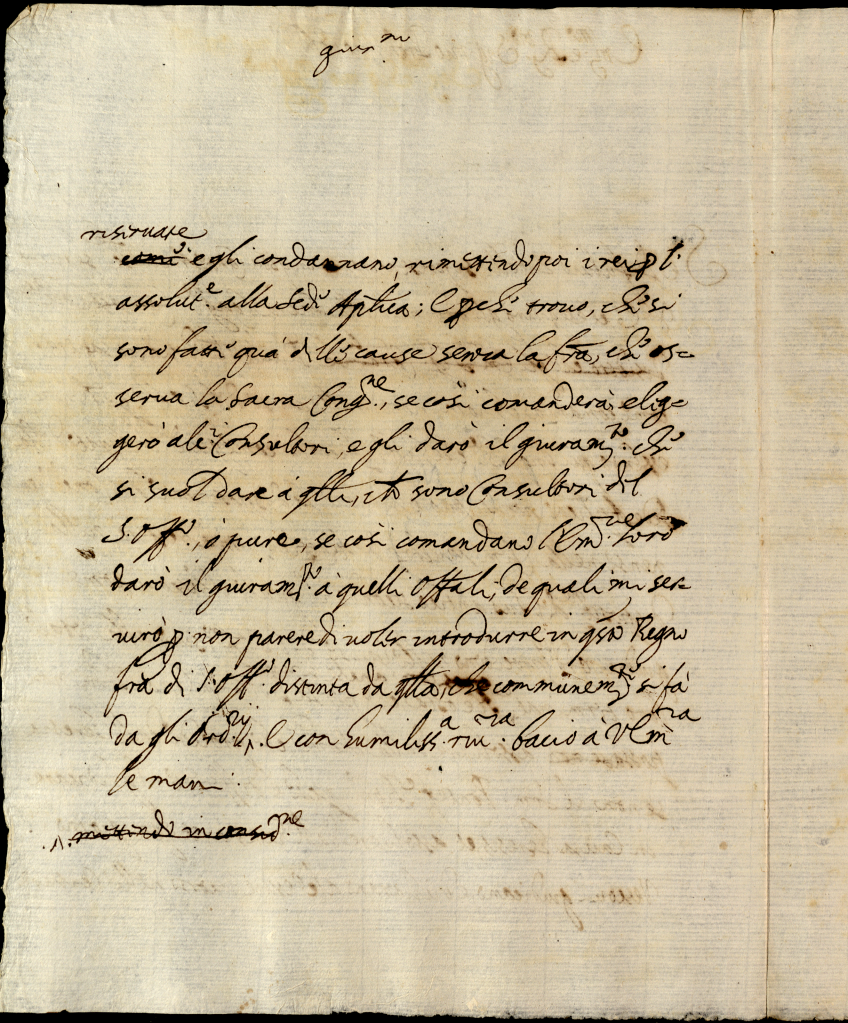 giur.ni
riseruate
com̃e e gli condannano, rimettendo poi i rei p l'
assolut.e alla Sede Aplica; E pche trouo, che si
sono fatte quà di lle cause senza la fra, che os=
serua la Sacra Cong.ne, se così comanderà, elig=
gerò ale Consultori, e gli darò il giuram.to che
si suol dare à glli, che sono Consultori del
S. Off.o, ò pure, se così comandano l'Em.ze loro
darò il giuram.to à quelli Offali, de quali mi ser=
uirò p non parere di uoler introdurre in q.sto Regno
frà di S. Off.o distinta da qlla, che communem.te si fà
da gli Ord.rij, E con humiliss.a riu.za bacio à V Em.za
le mani.
mettendo in consid.ne